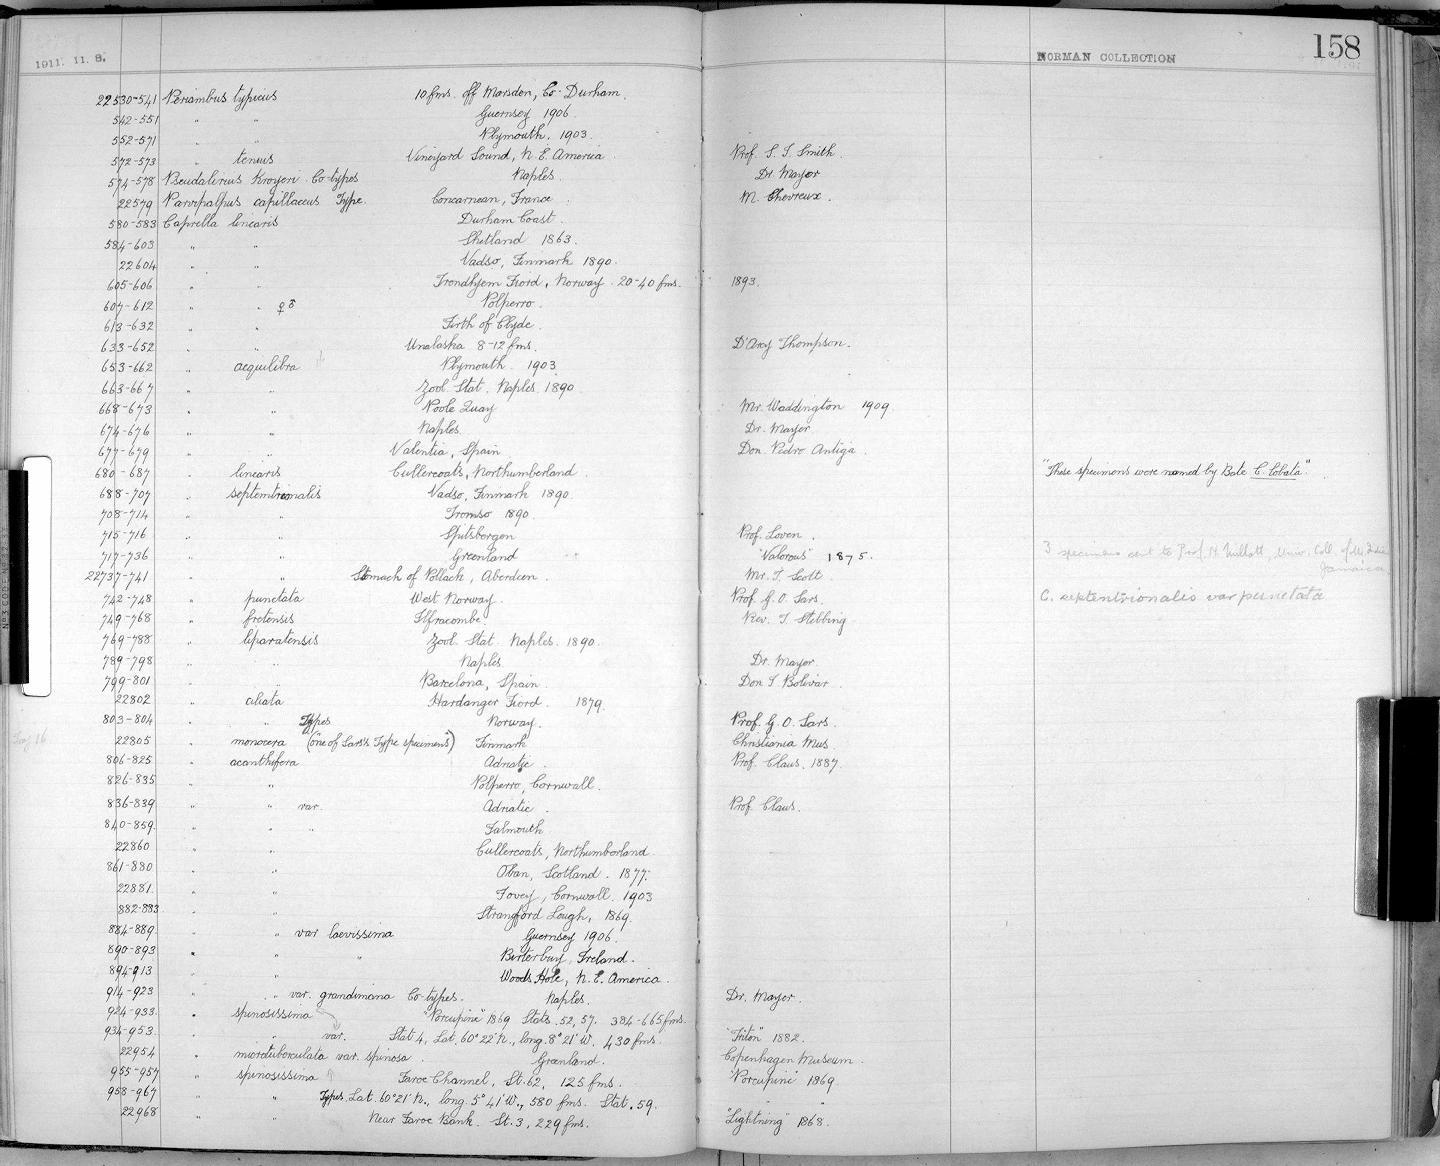 1911. 11. 8.
NORMAN COLLECTION
158
22530-541 Pariambus typicus 10 fms. off Marsden, Co. Durham.
542-551 " " Guernsey 1906.
552-571 " " Plymouth. 1903.
572-573 " tenuis Vineyard Sound, N. E. America. Prof. S. I. Smith.
574-578 Pseudolirius Kroyeri. Co-types Naples. Dr. Mayer
22579 Parvipalpus capillaceus Type. Concarnean, France. M. Chevreux.
580-583 Caprella linearis Durham Coast.
584-603 " " Shetland 1863.
22604 " " Vadso, Finmark 1890.
605-606 " " Trondhjem Fiord, Norway. 20-40 fms. 1893.
607-612 " " ♀ ♂ Polperro.
613-632 " " Firth of Clyde.
633-652 " " Unalaska 8-12 fms. D'Arcy Thompson.
653-662 " aequilibra Plymouth. 1903
663-667 " " Zool. Stat. Naples. 1890.
668-673 " " Poole Quay Mr. Waddington 1909.
674-676 " " Naples. Dr. Mayer
677-679 " " Valentia, Spain Don. Pedro Antiga.
680-687 " linearis Cullercoats, Northumberland. "These specimens were named by Bate C. lobata".
688-707 " septemtrionalis Vadso, Finmark 1890.
708-714 " " Tromso 1890.
715-716 " " Spitsbergen Prof. Loven.
717-736 " " Greenland "Valorous" 1875. 3 specimens sent to Prof. N. Millott, Univ. Coll. of W. Indies
Jamaica.
22737-741 " " Stomach of Pollack, Aberdeen. Mr. T. Scott.
742-748 " punctata West Norway. Prof. G. O. Sars. C. septentrionalis var punctata
749-768 " fretensis Ilfracombe. Rev. T. Stebbing
769-788 " liparatensis Zool. Stat. Naples. 1890.
789-798 " " Naples Dr. Mayer.
799-801 " " Barcelona, Spain. Don I Bolivar
22802 " ciliata Hardanger Fiord. 1879.
803-804 " " Types Norway. Prof. G. O. Sars.
22805 " monocera (one of Sars's Type specimens) Finmark Christiania Mus
806-825 " acanthifera Adriatic. Prof. Claus. 1887.
826-835 " " Polperro, Cornwall.
836-839 " " var. Adriatic. Prof. Claus.
840-859. " " " Falmouth
22860 " " Cullercoats, Northumberland.
861-880 " " Oban, Scotland. 1877.
22881. " " Fowey, Cornwall. 1903
882-883 " " Strangford Lough, 1869.
884-889. " " var laevissima Guernsey 1906.
890-893 " " " Birterbuy, Ireland.
894-913 " " Woods Hole, N. E. America.
914-923 " " var. grandimana Co-types. Naples. Dr. Mayer.
924-933. " spinosissima "Porcupine" 1869 Stats. 52, 57. 384-665 fms.
934-953. " " var. Stat 4, Lat. 60° 22' N., long. 8° 21' W. 430 fms. "Triton" 1882.
22954 " microtuberculata var. spinosa. Greenland. Copenhagen Museum.
955-957 " spinosissima Faroe Channel, St. 62, 125 fms. "Porcupine" 1869
958-967 " " Types. Lat. 60° 21' N., long. 5° 41' W., 580 fms. Stat. 59. " "
22968 " " Near Faroe Bank. St. 3, 229 fms. "Lightning" 1868.